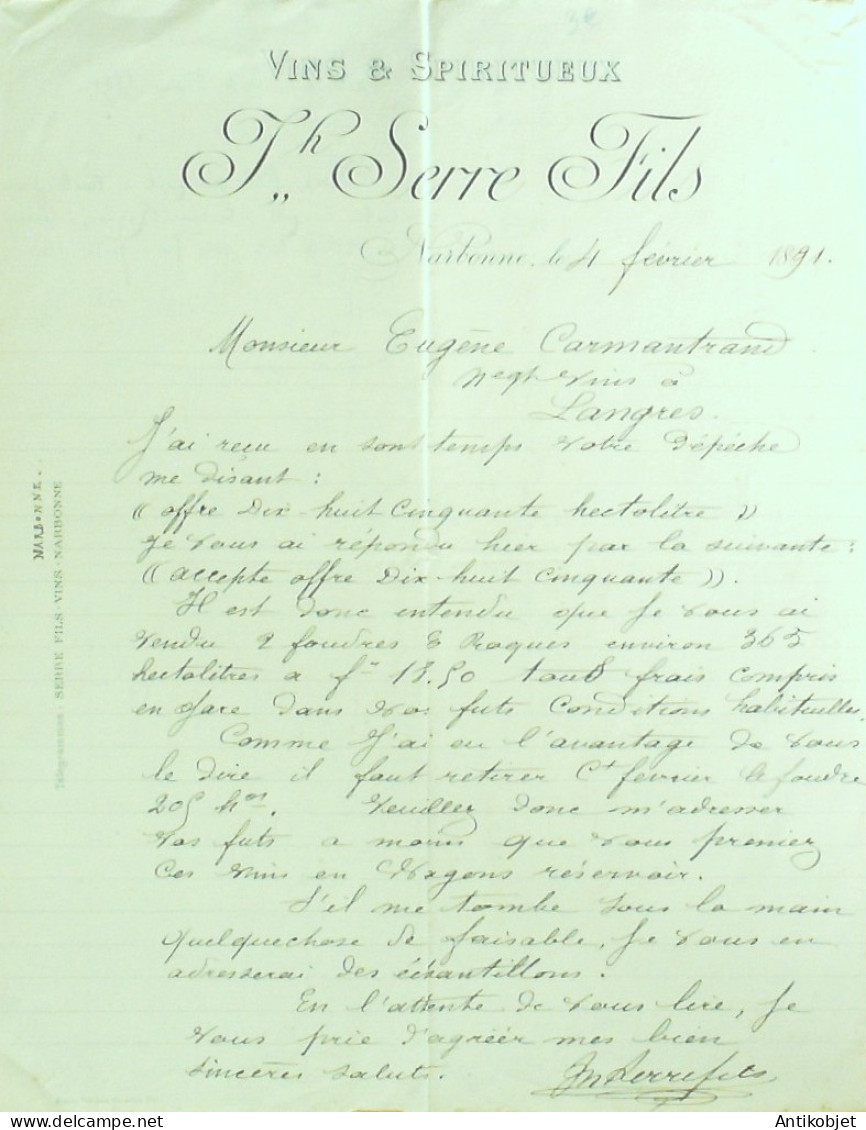 VINS & SPIRITUEUX
J"h Serre Fils
Narbonne, le 4 février 1891.
Monsieur Eugène Carmantrand
Negt vins à
Langres.
J'ai reçu en sont temps votre dépêche
me disant :
(( offre Dix-huit Cinquante hectolitre ))
Je vous ai répondu hier par la suivante :
((accepte offre Dix-huit cinquante )).
Il est donc entendu que Je vous ai
vendu 2 foudres environ 365
hectolitres a fr 18.50 tous frais compris
en gare dans vos futs Conditions habituelles.
Comme J'ai eu l'avantage de vous
le dire il faut retirer Ct fevrier le foudre
205 hos. Veuillez donc m'adresser
vos futs a moins que vous preniez
Ces vins en Wagons réservoir.
S'il me tombe sous la main
quelquechose de faisable, Je vous en
adresserai des échantillons.
En l'attente de vous lire, Je
vous prie d'agréér mes bien
sincères saluts. Jh Serre fils
NARBONNE.
Télégrammes : SERRE FILS-VINS-NARBONNE
Antikobjet - Delcampe.net